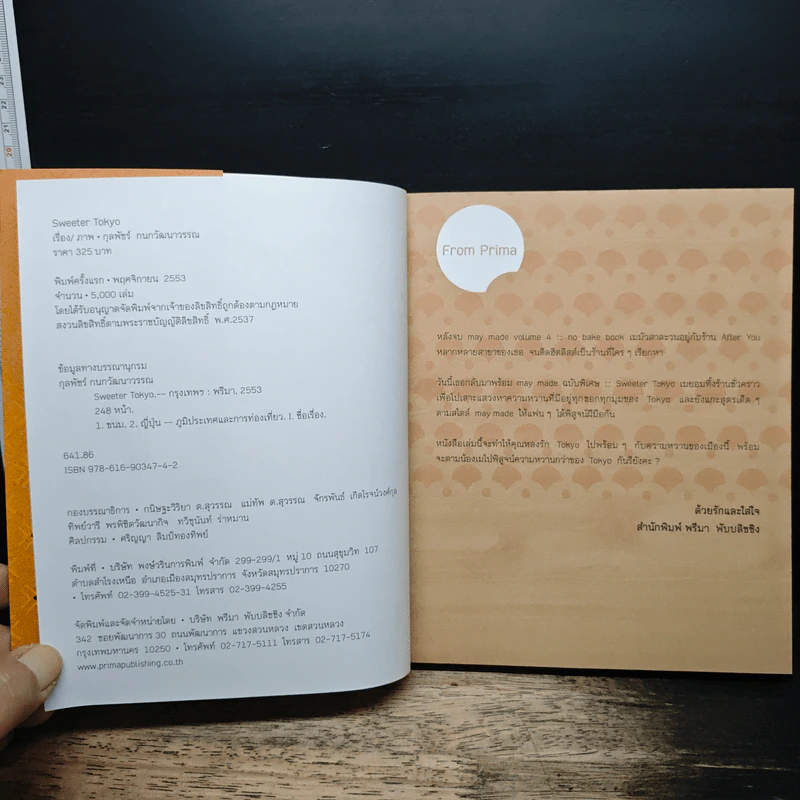 Sweeter Tokyo
เรื่อง/ ภาพ • กุลพัชร์ กนกวัฒนาวรรณ
ราคา 325 บาท
พิมพ์ครั้งแรก • พฤศจิกายน 2553
จำนวน • 5,000 เล่ม
โดยได้รับอนุญาตจัดพิมพ์จากเจ้าของลิขสิทธิ์ถูกต้องตามกฎหมาย
สงวนลิขสิทธิ์ตามพระราชบัญญัติลิขสิทธิ์ พ.ศ.2537
ข้อมูลทางบรรณานุกรม
กุลพัชร์ กนกวัฒนาวรรณ
Sweeter Tokyo.-- กรุงเทพฯ : พรีมา, 2553
248 หน้า.
1. ขนม. 2. ญี่ปุ่น -- ภูมิประเทศและการท่องเที่ยว. I. ชื่อเรื่อง.
641.86
ISBN 978-616-90347-4-2
กองบรรณาธิการ • กนิษฐะวิริยา ต.สุวรรณ แม่ทัพ ต.สุวรรณ จักรพันธ์ เกิดโรจน์วงศ์กุล
ทิพย์วารี พรพิชิตวัฒนากิจ ทวิชุนันท์ ร่าหมาน
ศิลปกรรม • ศริญญา ลิมป์ทองทิพย์
พิมพ์ที่ • บริษัท พงษ์วรินการพิมพ์ จำกัด 299-299/1 หมู่ 10 ถนนสุขุมวิท 107
ตำบลสำโรงเหนือ อำเภอเมืองสมุทรปราการ จังหวัดสมุทรปราการ 10270
• โทรศัพท์ 02-399-4525-31 โทรสาร 02-399-4255
จัดพิมพ์และจัดจำหน่ายโดย • บริษัท พรีมา พับบลิชชิง จำกัด
342 ซอยพัฒนาการ 30 ถนนพัฒนาการ แขวงสวนหลวง เขตสวนหลวง
กรุงเทพมหานคร 10250 • โทรศัพท์ 02-717-5111 โทรสาร 02-717-5174
www.primapublishing.co.th
From Prima
หลังจบ may made volume 4 :: no bake book เมมัวสาละวนอยู่กับร้าน After You
หลากหลายสาขาของเธอ จนติดฮิตลิสต์เป็นร้านที่ใคร ๆ เรียกหา
วันนี้เธอกลับมาพร้อม may made ฉบับพิเศษ :: Sweeter Tokyo เมยอมทิ้งร้านชั่วคราว
เพื่อไปเสาะแสวงหาความหวานที่มีอยู่ทุกซอกทุกมุมของ Tokyo และยังแกะสูตรเด็ด ๆ
ตามสไตล์ may made ให้แฟน ๆ ได้พิสูจน์ฝีมือกัน
หนังสือเล่มนี้จะทำให้คุณหลงรัก Tokyo ไปพร้อม ๆ กับความหวานของเมืองนี้ พร้อม
จะตามน้องเมไปพิสูจน์ความหวานกว่าของ Tokyo กันรึยังคะ ?
ด้วยรักและใส่ใจ
สำนักพิมพ์ พรีมา พับบลิชชิง
23
22
21
20